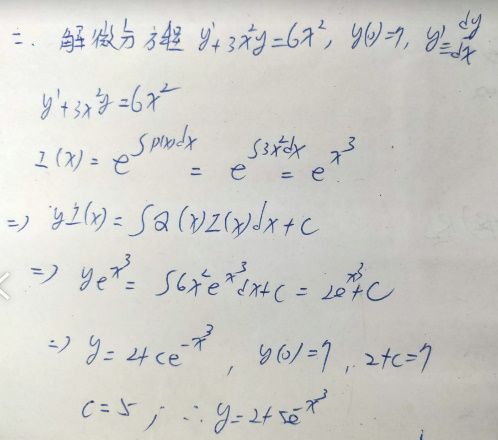 二. 解微分方程 y'+3x²y=6x², y(0)=7, y'=dy/dx
y'+3x²y=6x²
I(x) = e^∫p(x)dx = e^∫3x²dx = e^x³
=> yI(x) = ∫Q(x)I(x)dx+c
=> ye^x³ = ∫6x²e^x³dx+c = 2e^x³+C
=> y=2+ce^-x³, y(0)=7, 2+c=7
c=5; ∴ y=2+5e^-x³